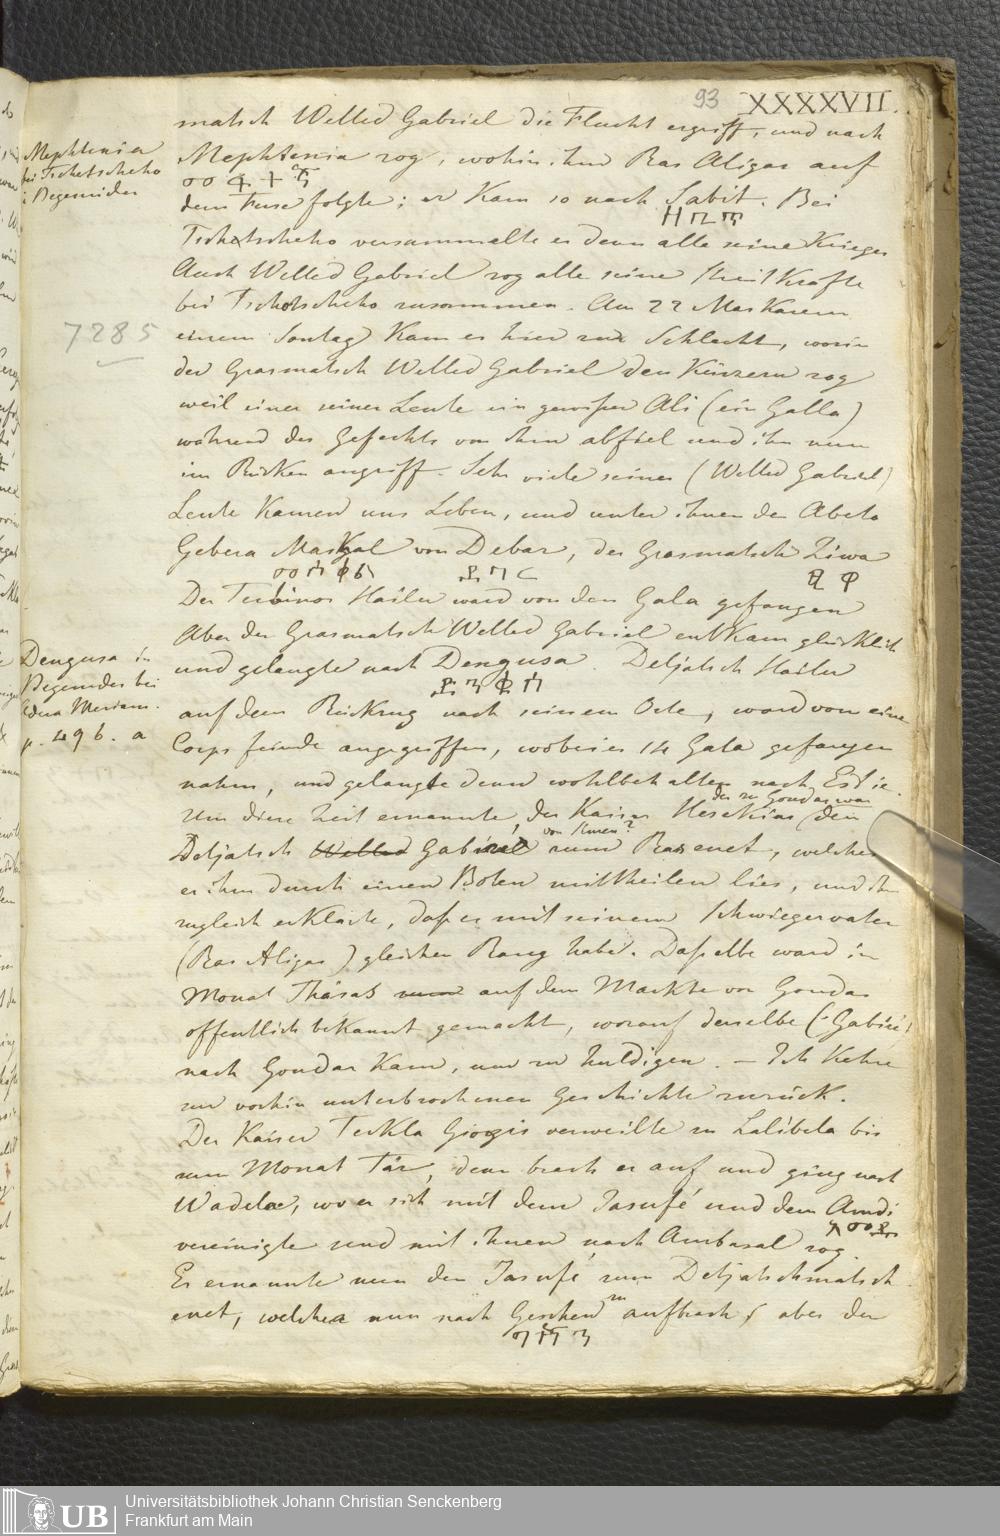 93 XXXXVII.
matsch Welled Gabriel die Flucht ergriff, und nach
Mephtenia zog, wohin ihm Ras Aligas auf
dem Fuse folgte; er kam so nach Sabit. Bei
Tschetscheho versammelte er denn alle seine Krieger
Auch Welled Gabriel zog alle seine Streitkräfte
bei Tschetscheho zusammen. Am 22 Maskarem
einem Sontag kam es hier zur Schlacht, worin
der Grasmatsch Welled Gabriel den Kürzern zog
weil einer seiner Leute ein gewisser Ali (ein Galla)
während des Gefechts von ihm abfiel und ihn nun
im Rücken angriff. Sehr viele seiner (Welled Gabriel)
Leute kamen ums Leben, und unter ihnen der Abeto
Gebera Maskal von Debar, der Grasmatsch Ziwa
Der Turbinos Hailu ward von den Gala gefangen
Aber der Grasmatsch Welled Gabriel entkam glücklich
und gelangte nach Dengusa. Detjatsch Hailu
auf dem Rückzug nach seinem Orte, ward von eine
Corps feinde angegriffen, wobei er 14 Gala gefangen
nahm, und gelangte denn wohlbehalten nach Estie.
Um diese Zeit ernannte, der Kaiser Hesekias der zu Gondar war den
Detjatsch Welled Gabriel von Simen? zum Ras enet, welches
er ihm durch einen Boten mittheilen lies, und ihm
zugleich erklärte, daß er mit seinem Schwiegervater
(Ras Aligas) gleichen Rang habe. Dasselbe ward im
Monat Thäsas auf dem Markte von Gondar
öffentlich bekannt gemacht, worauf derselbe (Gabrié)
nach Gondar kam, um zu huldigen. — Ich kehre
zur vorhin unterbrochenen Geschichte zurück.
Der Kaiser Teckla Giorgis verweilte zu Lalibela bis
zum Monat Tär, denn brach er auf und ging nach
Wadela, wo er sich mit dem Jasufé und dem Amdi
vereinigte und mit ihnen nach Ambasal zog.
Er ernannte nun den Jasufé zum Detjatschmatsch
enet, welcher nun nach Geschen zu aufbrach, aber der
Mephtenia
bei Tschetscheho
in Begemider
7285
Dengusa in
Begemder bei
Edua Meriam.
p. 496. a
UB
Universitätsbibliothek Johann Christian Senckenberg
Frankfurt am Main